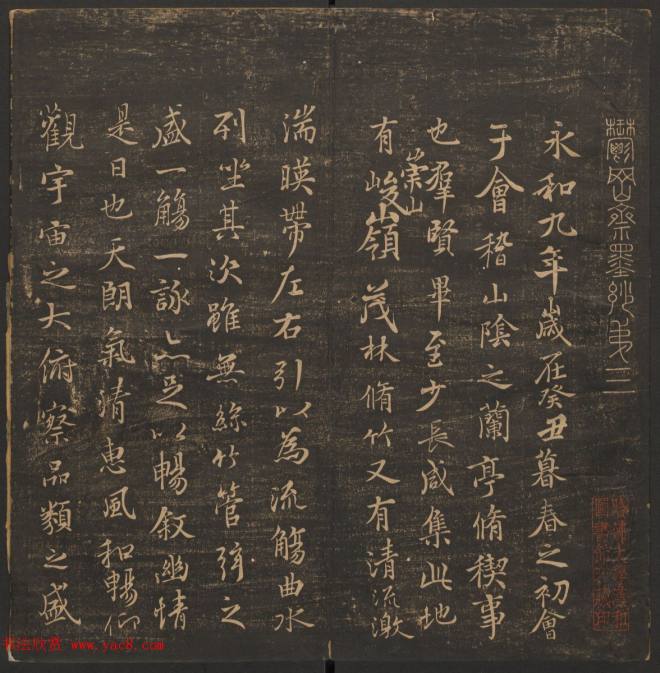 鬱岡齋墨妙第三
永和九年歲在癸丑暮春之初會
于會稽山陰之蘭亭脩稧事
也羣賢畢至少長咸集此地
有崇山峻嶺茂林脩竹又有清流激
湍暎帶左右引以為流觴曲水
列坐其次雖無絲竹管弦之
盛一觴一詠亦足以暢敘幽情
是日也天朗氣清惠風和暢仰
觀宇宙之大俯察品類之盛
书法欣赏 www.yac8.com